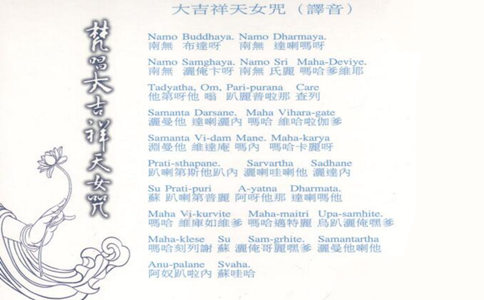 大吉祥天女咒（譯音）
梵唱大吉祥天女咒
Namo Buddhaya. Namo Dharmaya.
南無 布達呀 南無 達喇嗎呀
Namo Samghaya. Namo Sri Maha-Deviye.
南無 灑俺卡呀 南無 氏麗 嗎哈爹維耶
Tadyatha, Om, Pari-purana Care
他第呀他 嗡 趴麗普啦那 查列
Samanta Darsane. Maha Vihara-gate
灑曼他 達喇灑內 嗎哈 維哈啦伽爹
Samanta Vi-dam Mane. Maha-karya
淵曼他 維達庵 嗎內 嗎哈卡麗呀
Prati-sthapane. Sarvartha Sadhane
趴喇第斯他趴內 灑喇哇喇他 灑達內
Su Prati-puri A-yatna Dharmata.
蘇 趴喇第普麗 阿呀他那 達喇嗎他
Maha Vi-kurvite Maha-maitri Upa-samhite.
嗎哈 維庫如維爹 嗎哈邁特麗 烏趴灑俺嘿爹
Maha-klese Su Sam-grhite. Samantartha
嗎哈刻列謝 蘇 灑俺哥麗嘿爹 灑曼他喇他
Anu-palane Svaha.
阿奴趴啦內 蘇哇哈